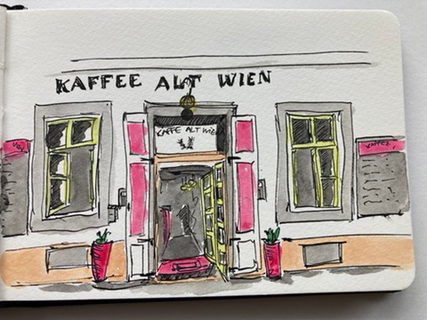 KAFFEE ALT WIEN
KAFFE ALT WIEN